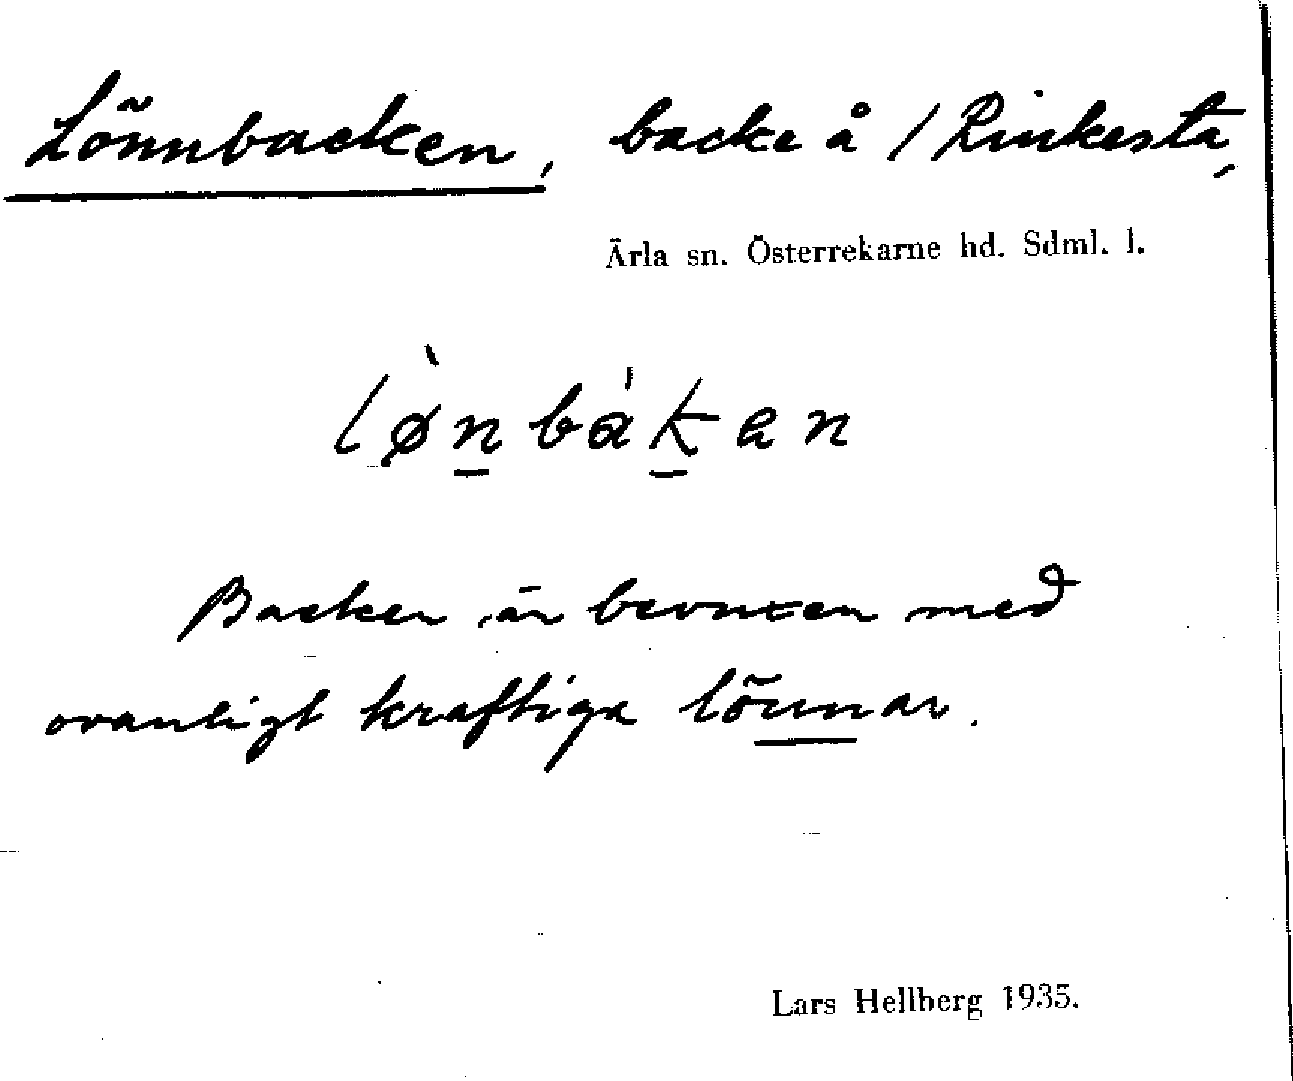 Lönnbacken, backe å /Rinkesta,
Ärla sn. Österrekarne hd. Sdml. l.
lø̀nbákan
Backen är bevuxen med
ovanligt kraftiga lönnar.
Lars Hellberg 1935.